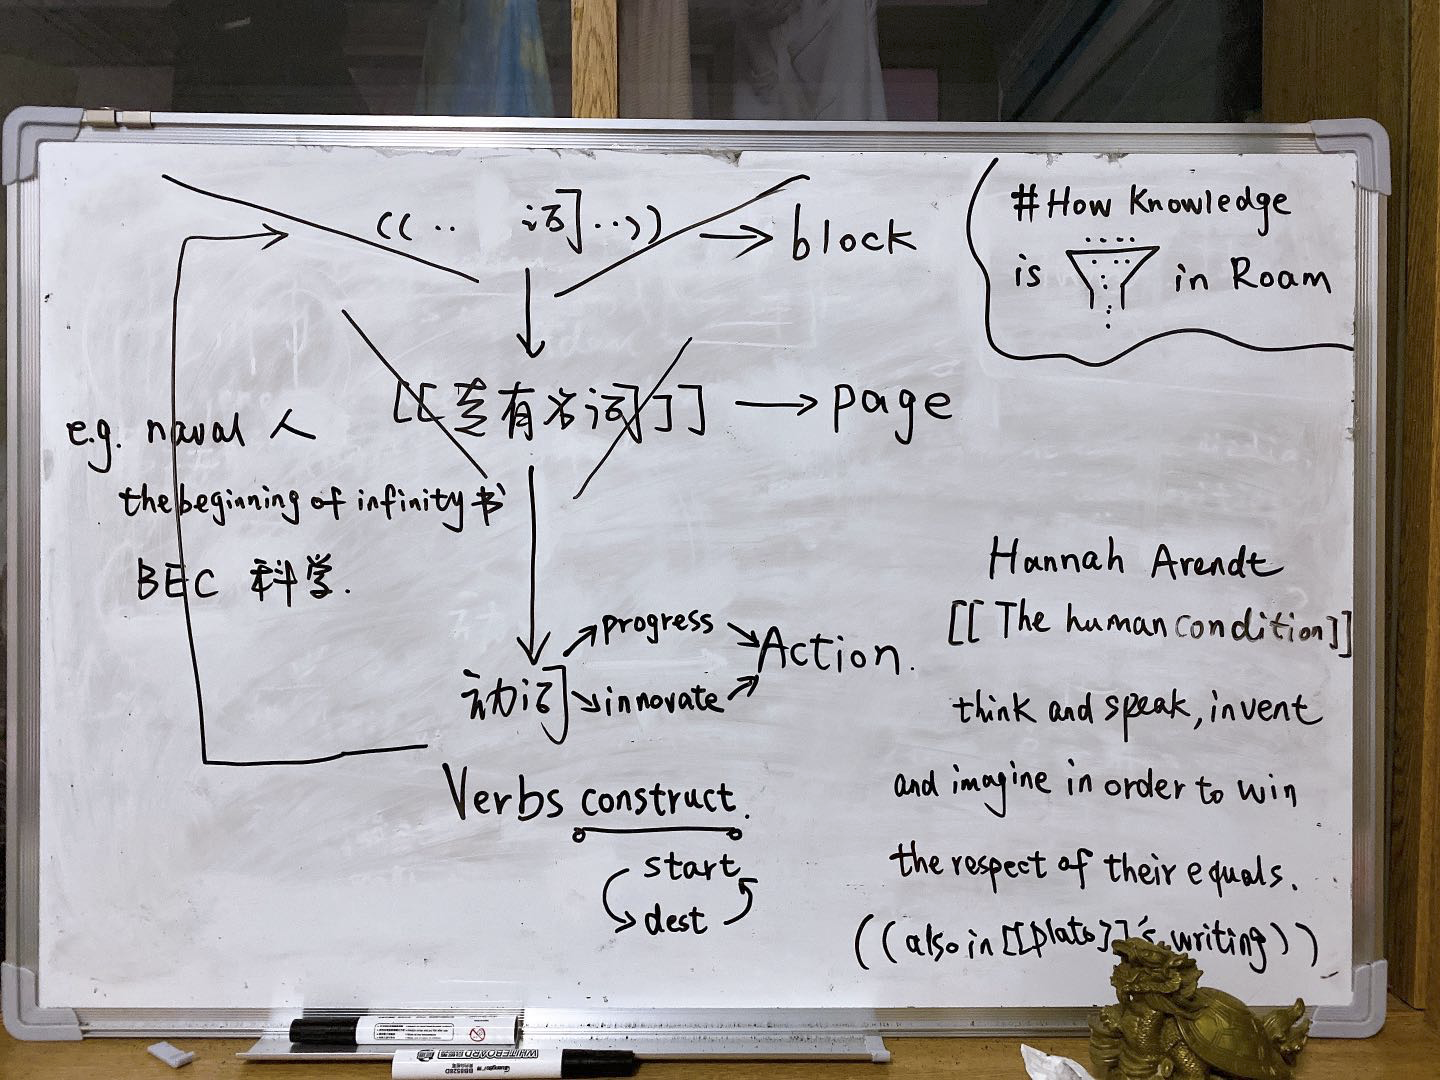 ((.. 词..))
→ block
#How Knowledge
is in Roam
[[专有名词]] → page
e.g. naval 人
the beginning of infinity 书
BEC 科学.
动词
progress
innovate
Action.
Verbs construct.
start
dest
Hannah Arendt
[[The human condition]]
think and speak, invent
and imagine in order to win
the respect of their equals.
((also in [[plato]]'s writing))
WHITEBOARD